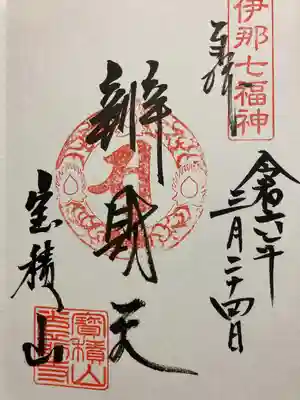 伊那七福神
奉拝
令和六年
三月二十四日
辨財天
宝積山
寶積山